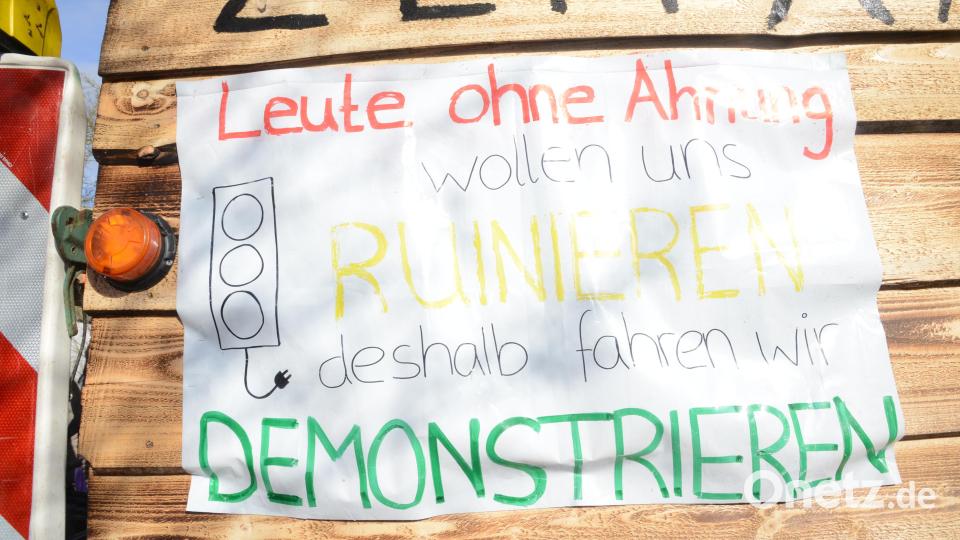 Leute ohne Ahnung
wollen uns
RUINIEREN
deshalb fahren wir
DEMONSTRIEREN
Onetz.de